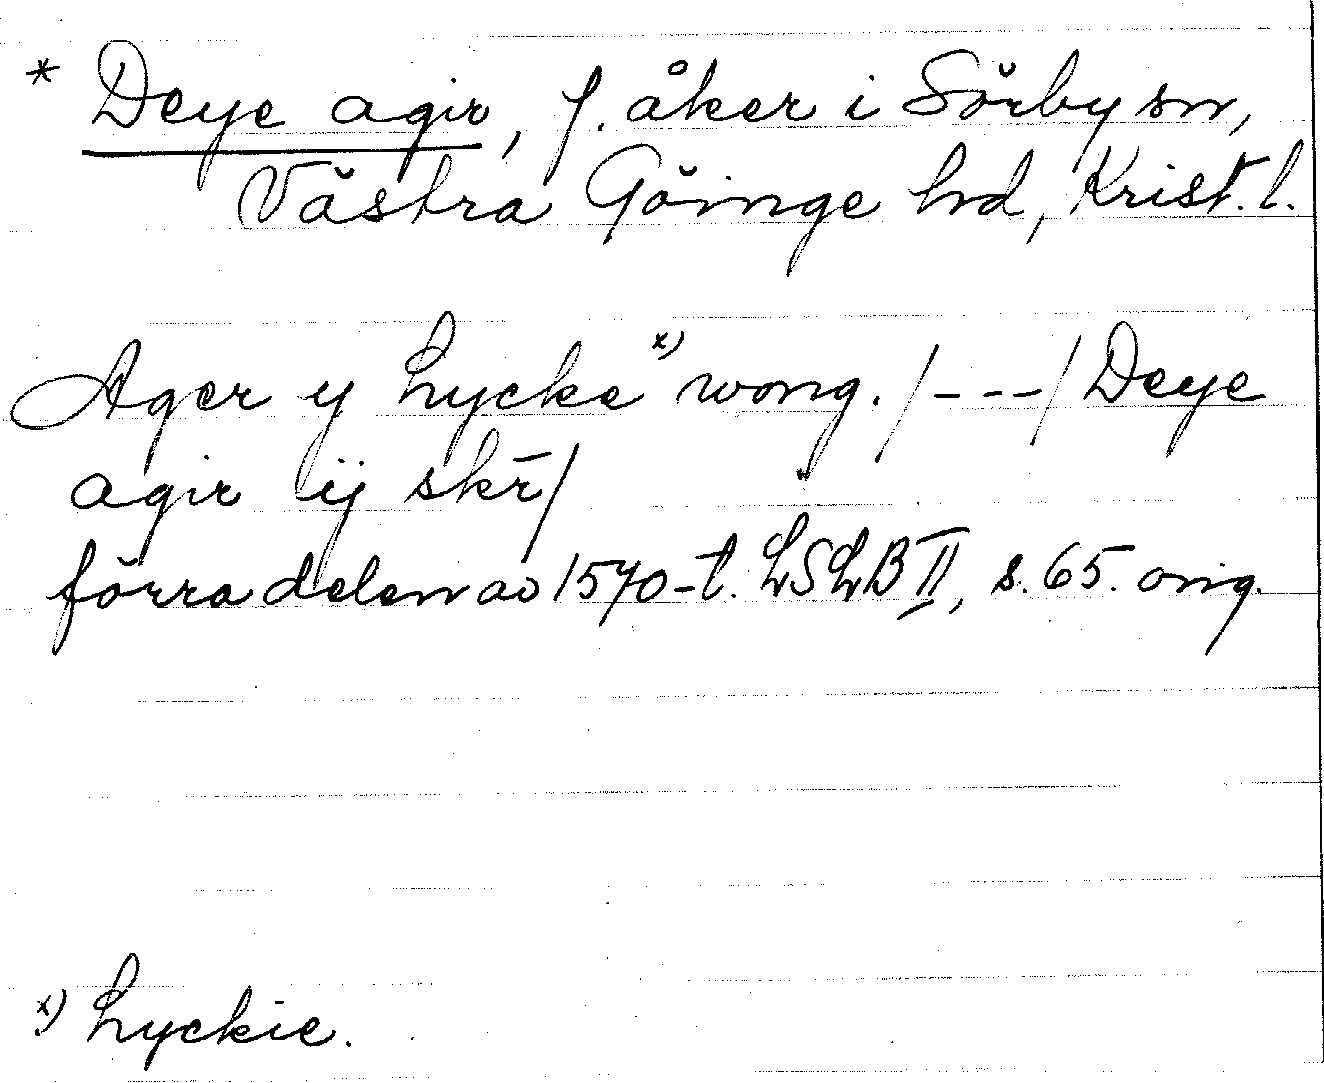 * Deye agir, f. åker i Sörby sn,
Västra Göinge hd, Krist. l.
Ager y Lycke x) wong. /---/ Deye
agir ij skr̄/
förra delen av 1570-t. LSLB II, s. 65. orig.
x) Lyckie.